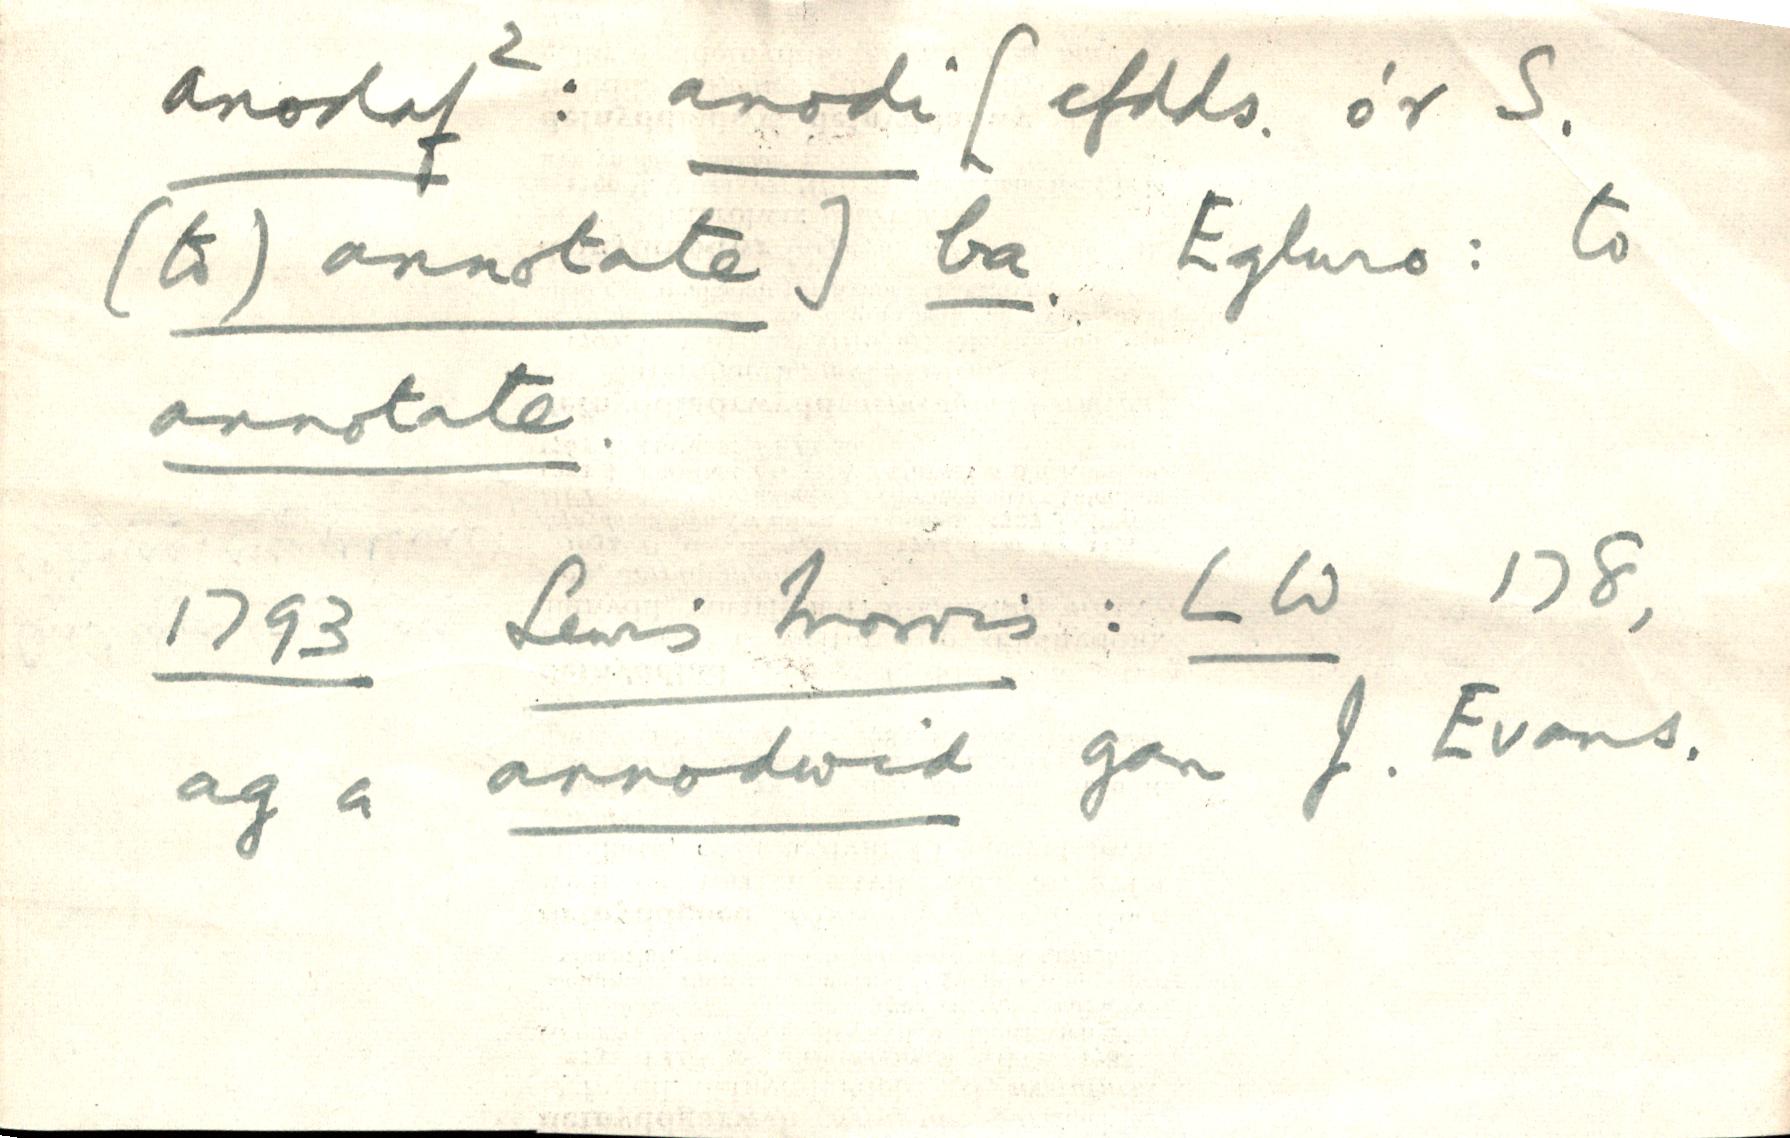 anodaf²: anodi [efdds. o'r S.
(to) annotate] ba. Egluro: to
annotate.
1793 Lewis Morris: LW 178,
ag a annodwid gan J. Evans.